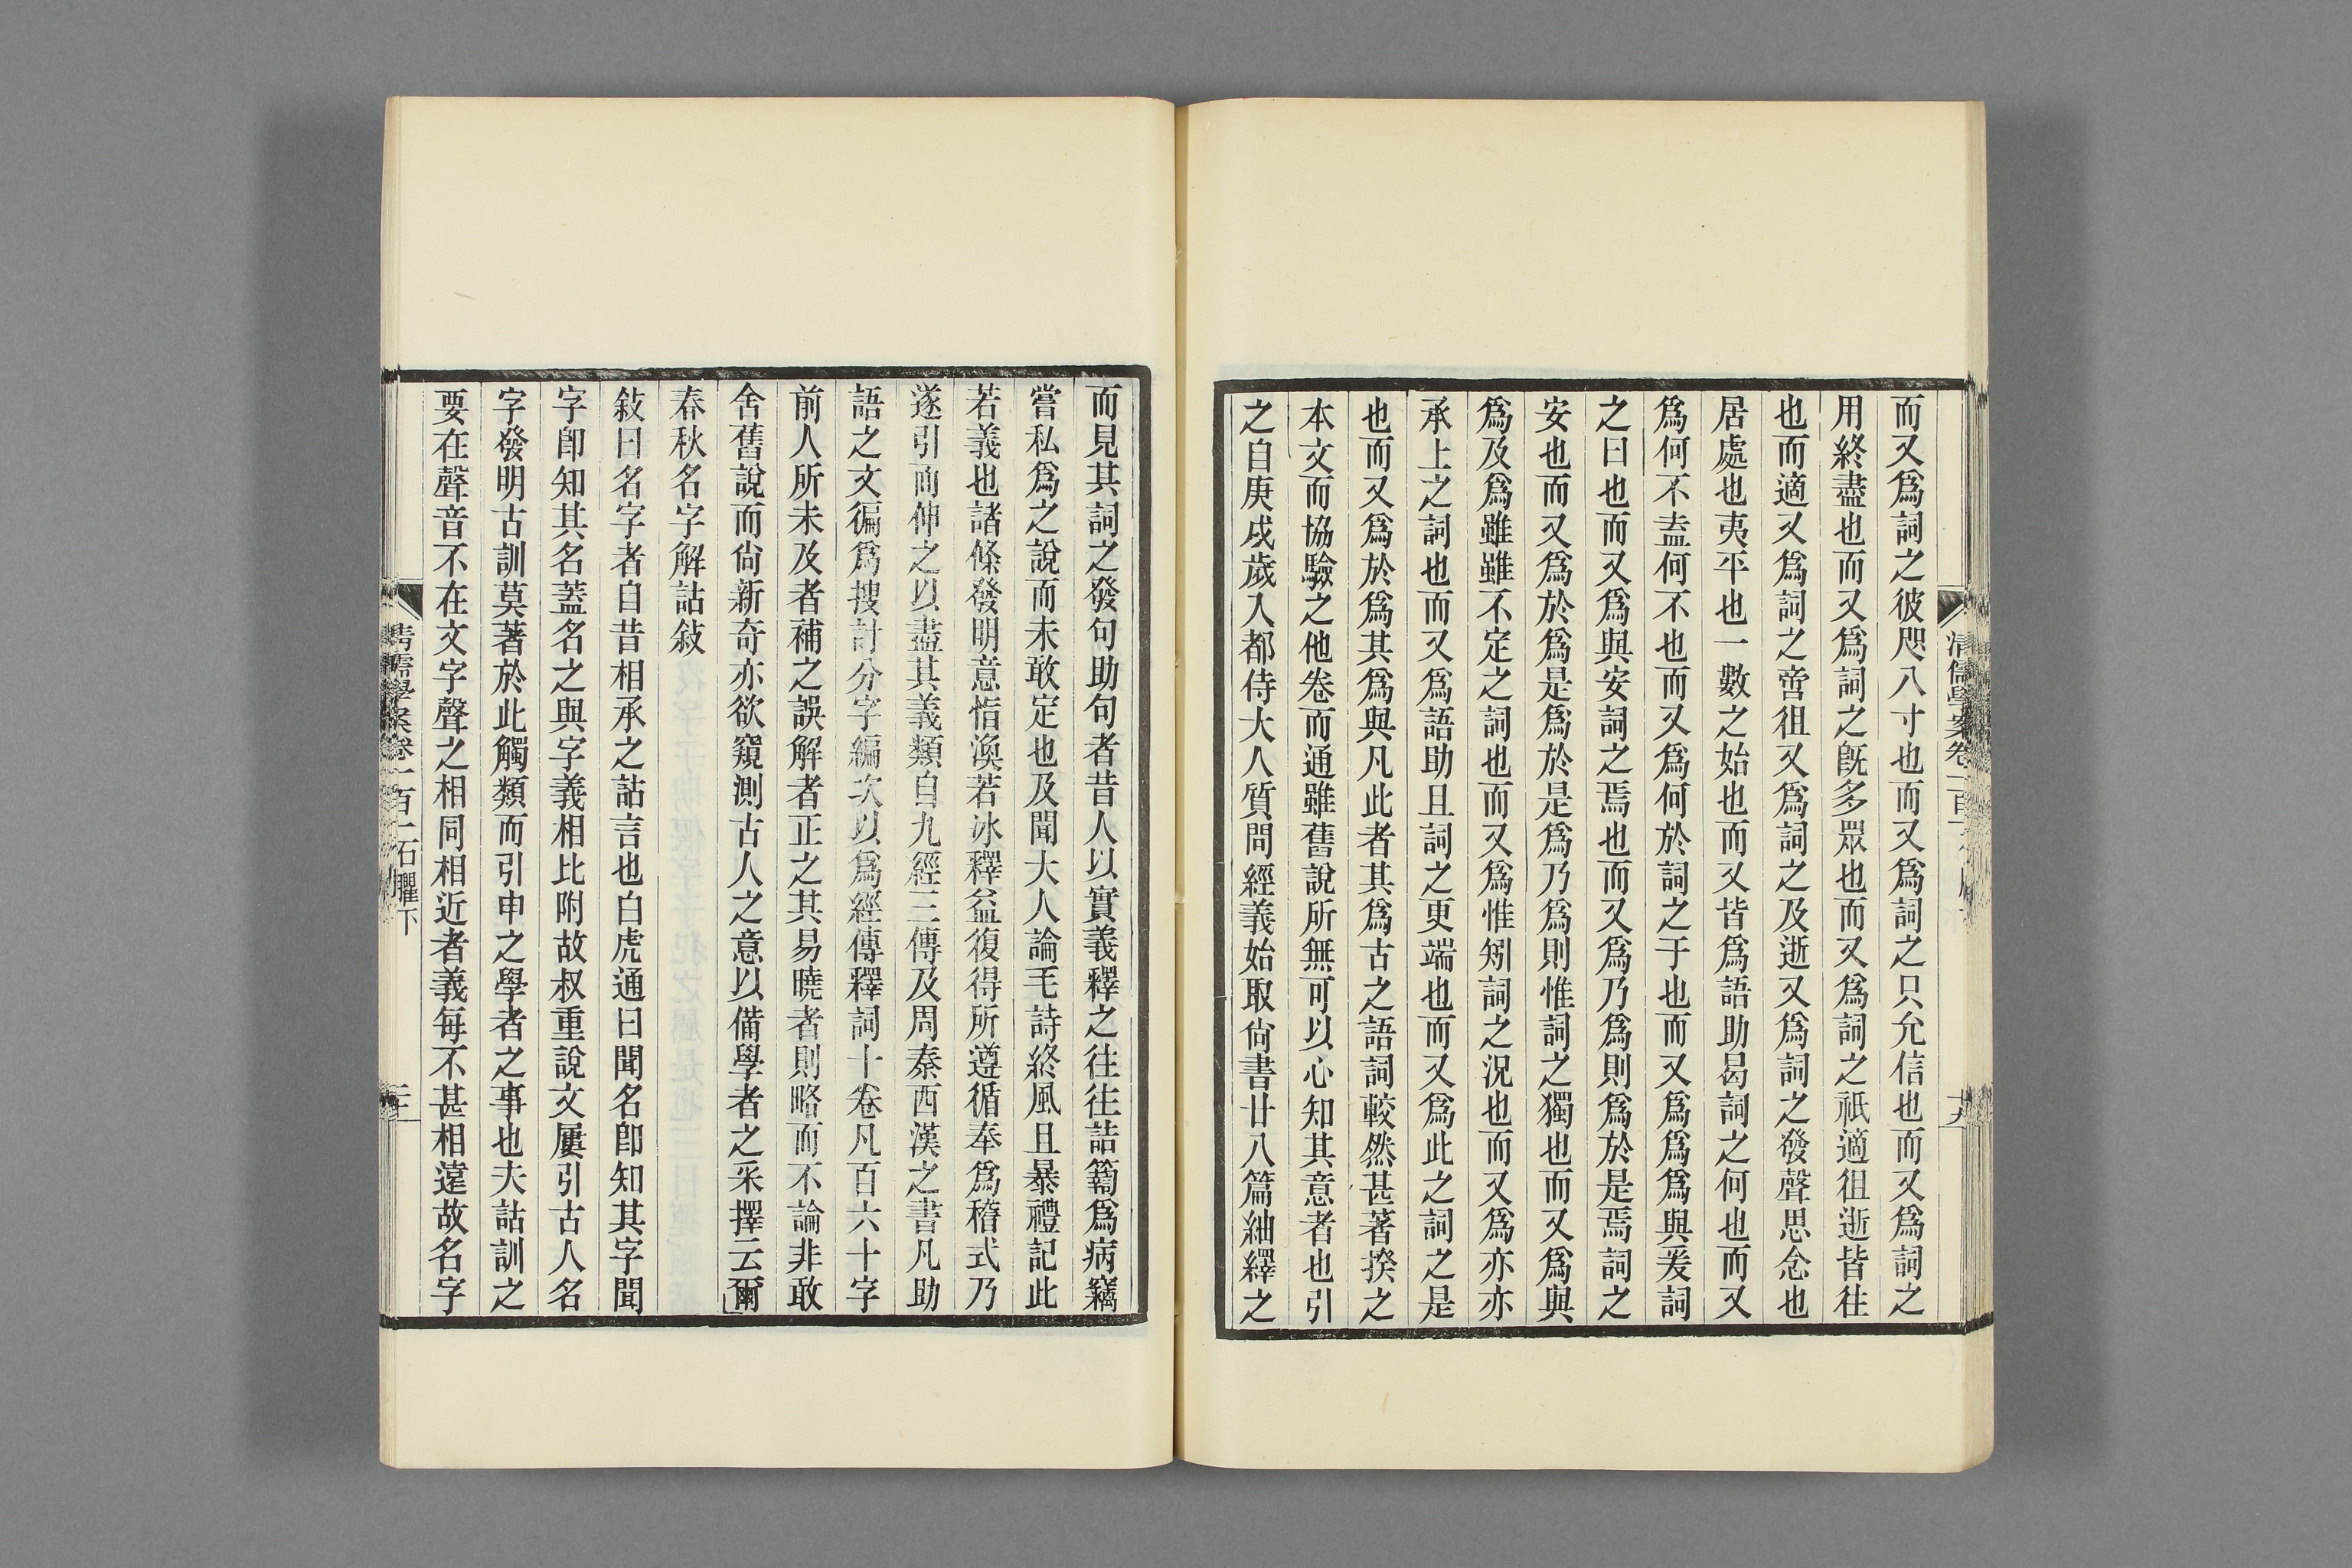 而又爲詞之彼咫八寸也而又爲詞之只允信也而又爲詞之
用終盡也而又爲詞之旣多眾也而又爲詞之祇適徂逝皆往
也而適又爲詞之啻徂又爲詞之及逝又爲詞之發聲思念也
居處也夷平也一數之始也而又皆爲語助曷詞之何也而又
爲何不盍何不也而又爲何於詞之于也而又爲爲爲與爰詞
之曰也而又爲與安詞之焉也而又爲乃爲則爲於是焉詞之
安也而又爲於爲是爲於是爲乃爲則惟詞之獨也而又爲與
爲及爲雖雖不定之詞也而又爲惟矧詞之況也而又爲亦亦
承上之詞也而又爲語助且詞之更端也而又爲此之詞之是
也而又爲於爲其爲與凡此者其爲古之語詞較然甚著揆之
本文而協驗之他卷而通雖舊說所無可以心知其意者也引
之自庚戌歲入都侍大人質問經義始取尙書廿八篇紬繹之
清儒學案卷一百一
十九
而見其詞之發句助句者昔人以實義釋之往往詰𥷚爲病竊
嘗私爲之說而未敢定也及聞大人論毛詩終風且暴禮記此
若義也諸條發明意恉渙若冰釋益復得所遵循奉爲稽式乃
遂引而伸之以盡其義類自九經三傳及周秦西漢之書凡助
語之文徧爲搜討分字編次以爲經傳釋詞十卷凡百六十字
前人所未及者補之誤解者正之其易曉者則略而不論非敢
舍舊說而尙新奇亦欲窺測古人之意以備學者之采擇云爾
春秋名字解詁敍
敍曰名字者自昔相承之詁言也白虎通曰聞名卽知其字聞
字卽知其名蓋名之與字義相比附故叔重說文屢引古人名
字發明古訓莫著於此觸類而引申之學者之事也夫詁訓之
要在聲音不在文字聲之相同相近者義每不甚相遠故名字
清儒學案卷一百一石臞下
二十